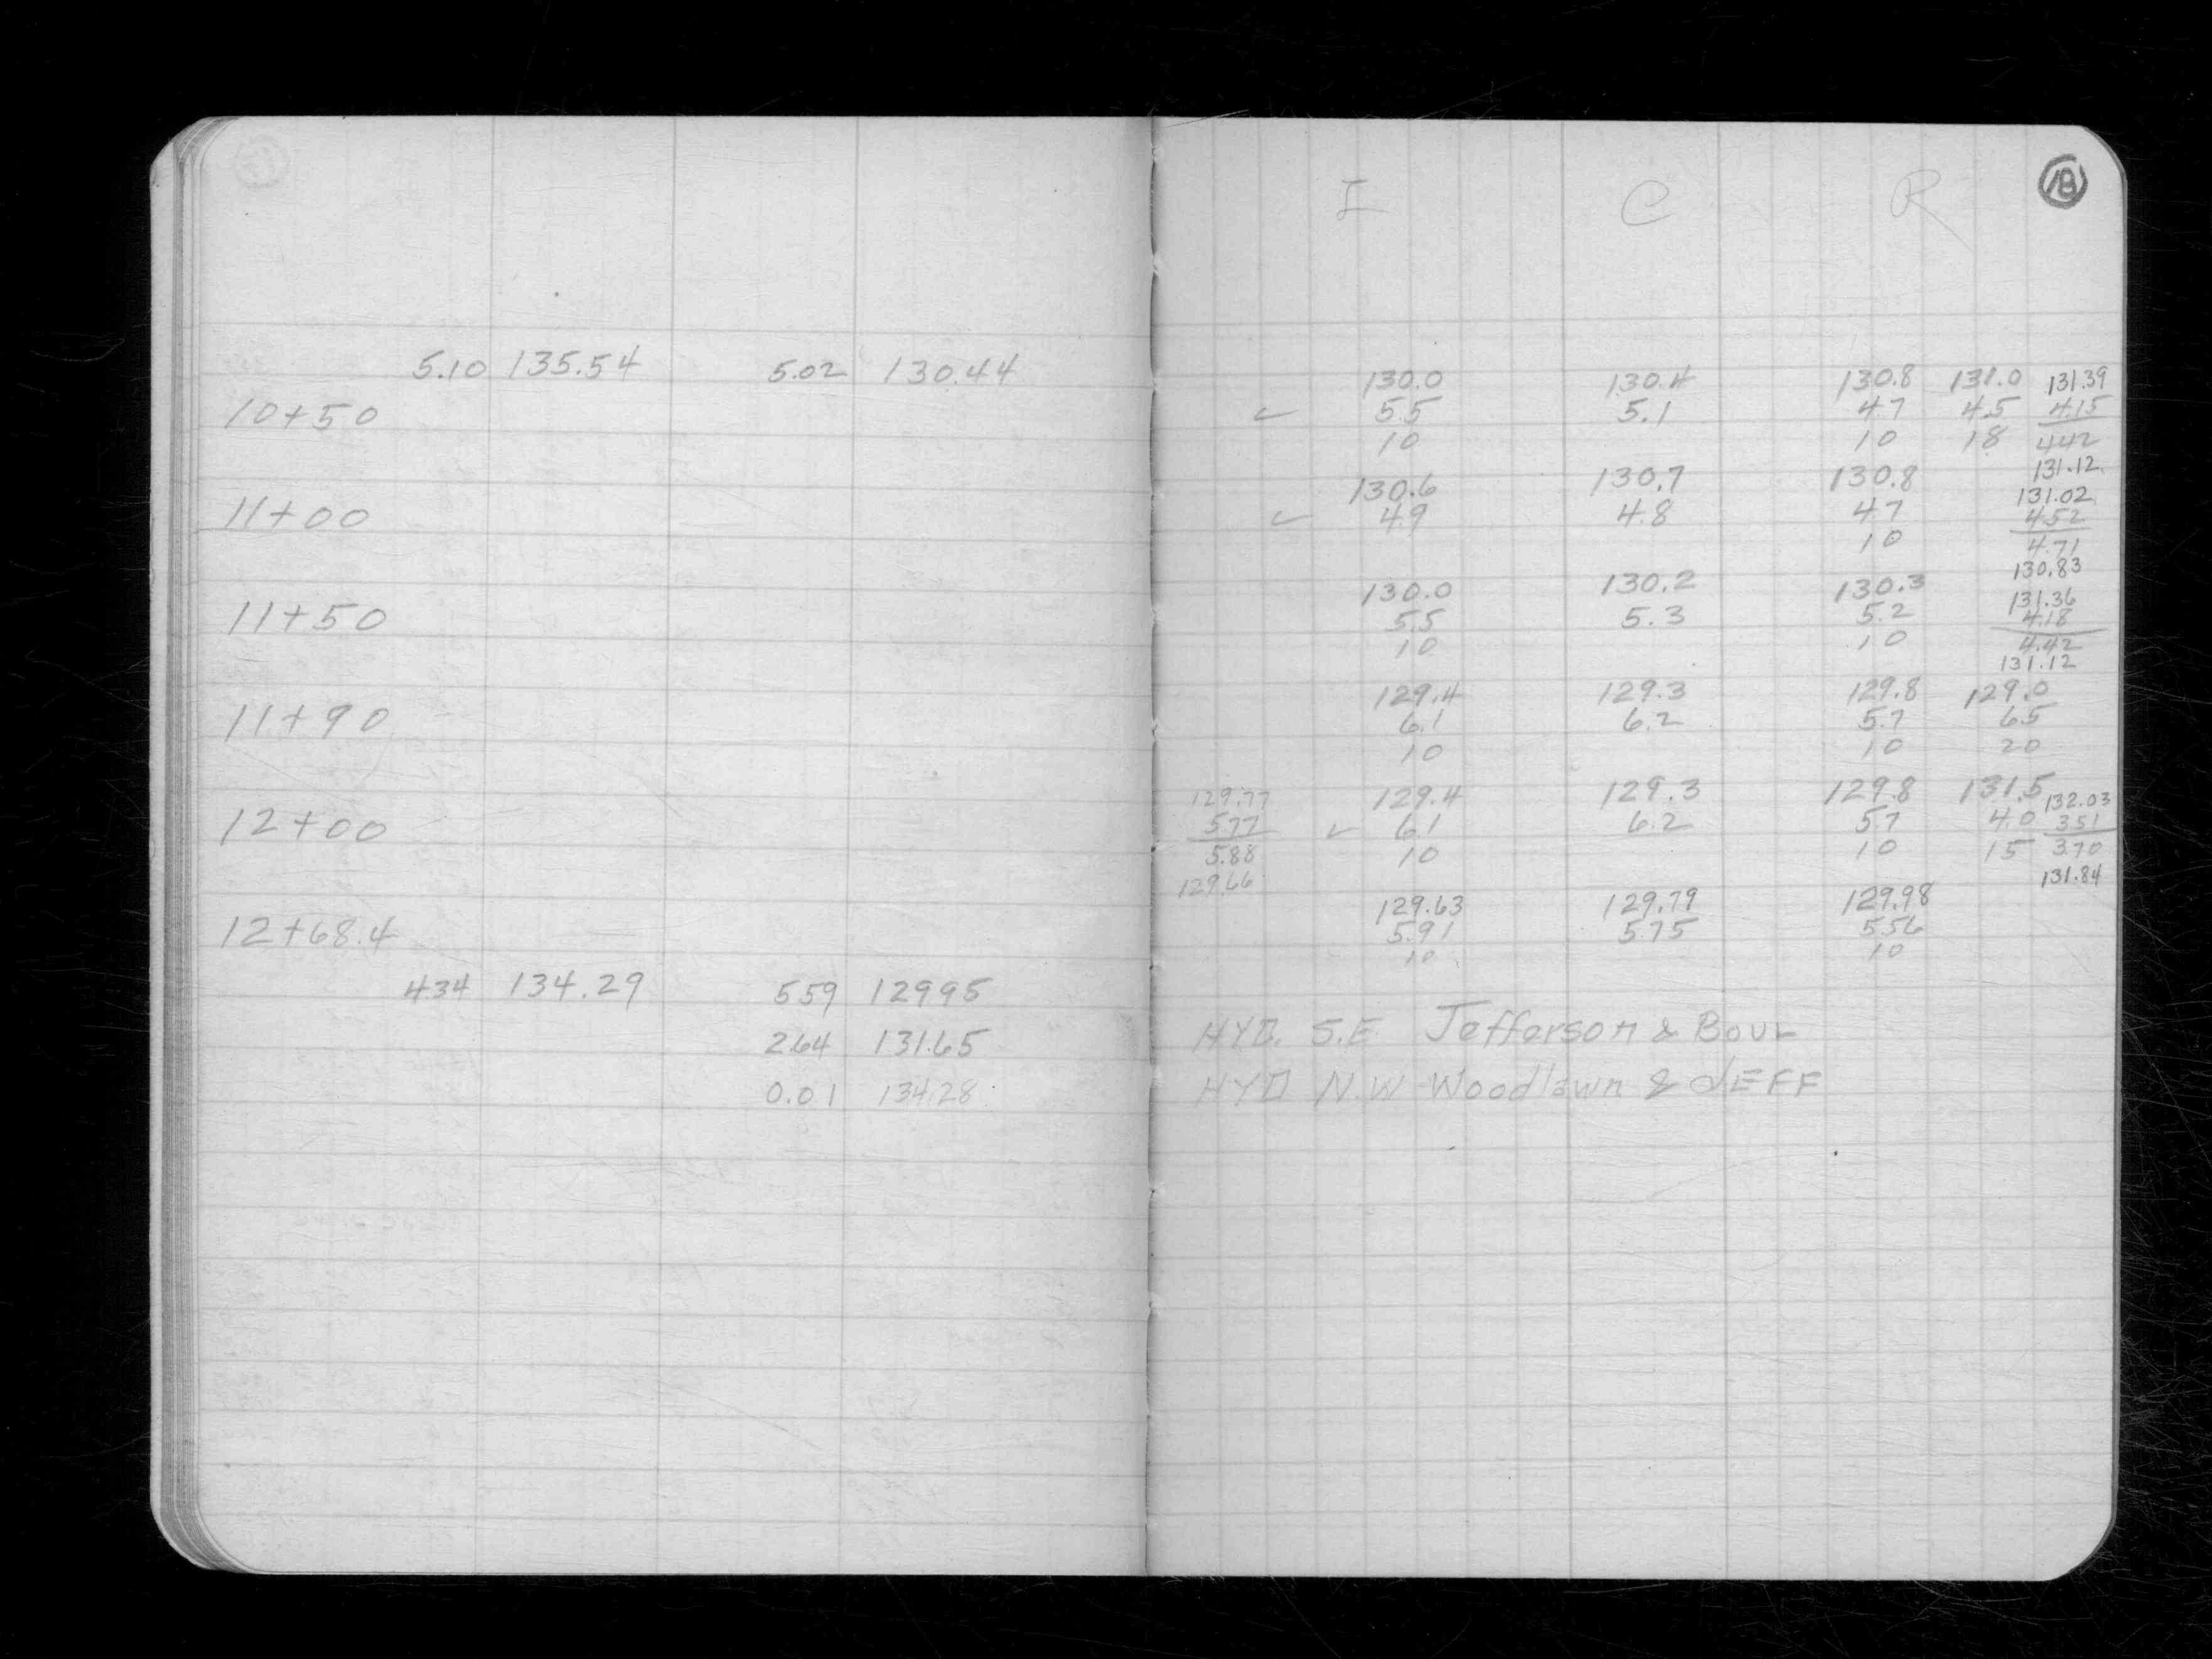 5.10 135.54 5.02 130.44
10+50
11+00
11+50
11+90
12+00
12+68.4
434 134.29 559 12995
264 131.65
0.01 134.28
18
C R
130.0 130.4 130.8 131.0 131.39
✓ 5.5 5.1 4.7 4.5 4.15
10 10 18 442
131.12
130.6 130.7 130.8 131.02
✓ 49 4.8 47 452
10 4.71
130.83
130.0 130.2 130.3 131.36
55 5.3 5.2 4.18
10 10 4.42
131.12
129.4 129.3 129.8 129.0
6.1 6.2 5.7 6.5
10 10 20
129.77 129.4 129.3 129.8 131.5 132.03
577 ✓ 6.1 6.2 57 4.0 351
5.88 10 10 15 3.70
129.66 131.84
129.63 129.79 129.98
5.91 575 5.56
10 10
HYD. S.E Jefferson & BOUL
HYD N.W Woodlawn & JEFF